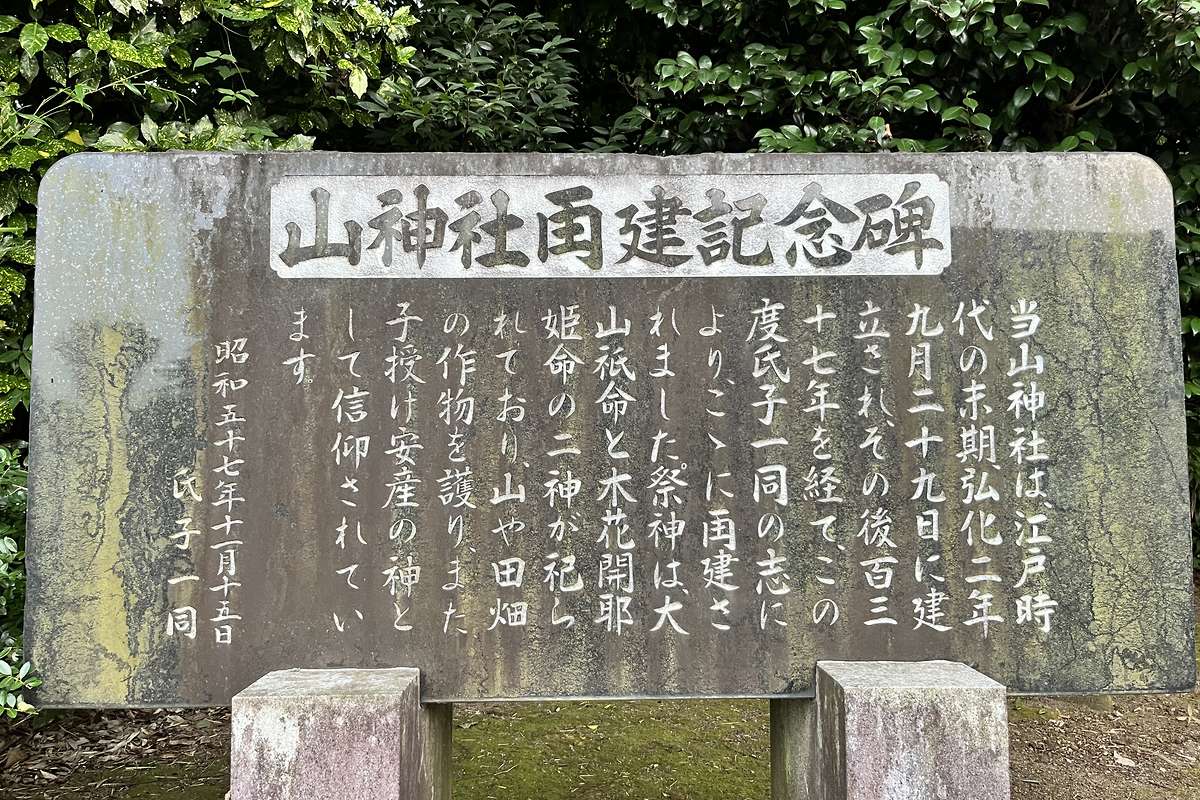 山神社再建記念碑
当山神社は、江戸時
代の末期、弘化二年
九月二十九日に建
立され、その後百三
十七年を経て、この
度氏子一同の志に
よりこゝに再建さ
れました。祭神は、大
山祇命と木花開耶
姫命の二神が祀ら
れており、山や田畑
の作物を護り、また
子授け安産の神と
して信仰されてい
ます。
昭和五十七年十一月十五日
氏子一同